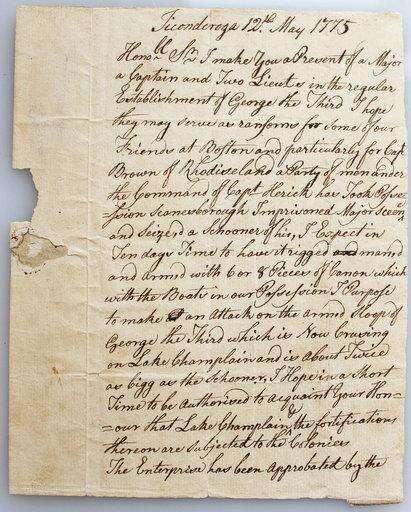 Ticonderoga 12th May 1775
Honble Sr I make You a Present of a Major
a Captain and Two Lieuts in the regular
Establishment of George the Third I hope
they may serve as ransoms for some of our
Friends at Boston and particularly for Capt
Brown of Rhodiseland a Party of men under
the Command of Capt Herick has Took Posse=
=ssion Scanesborough Imprisoned Major Sceen
and Seized a Schooner of his, I Expect in
Ten days Time to have it rigged and man'd
and armed with 6 or 8 Pieces of Canon which
with the Boats in our Possession I Purpose
to make an Attack on the armed Sloop of
George the Third which is Now Cruising
on Lake Champlain and is About Twice
as bigg as the Schooner, I Hope in a Short
Time to be Authorised to Acquaint Your Hon=
=our that Lake Champlain & the fortifications
thereon are Subjected to the Colonies
The Enterprise has been Approbated by the